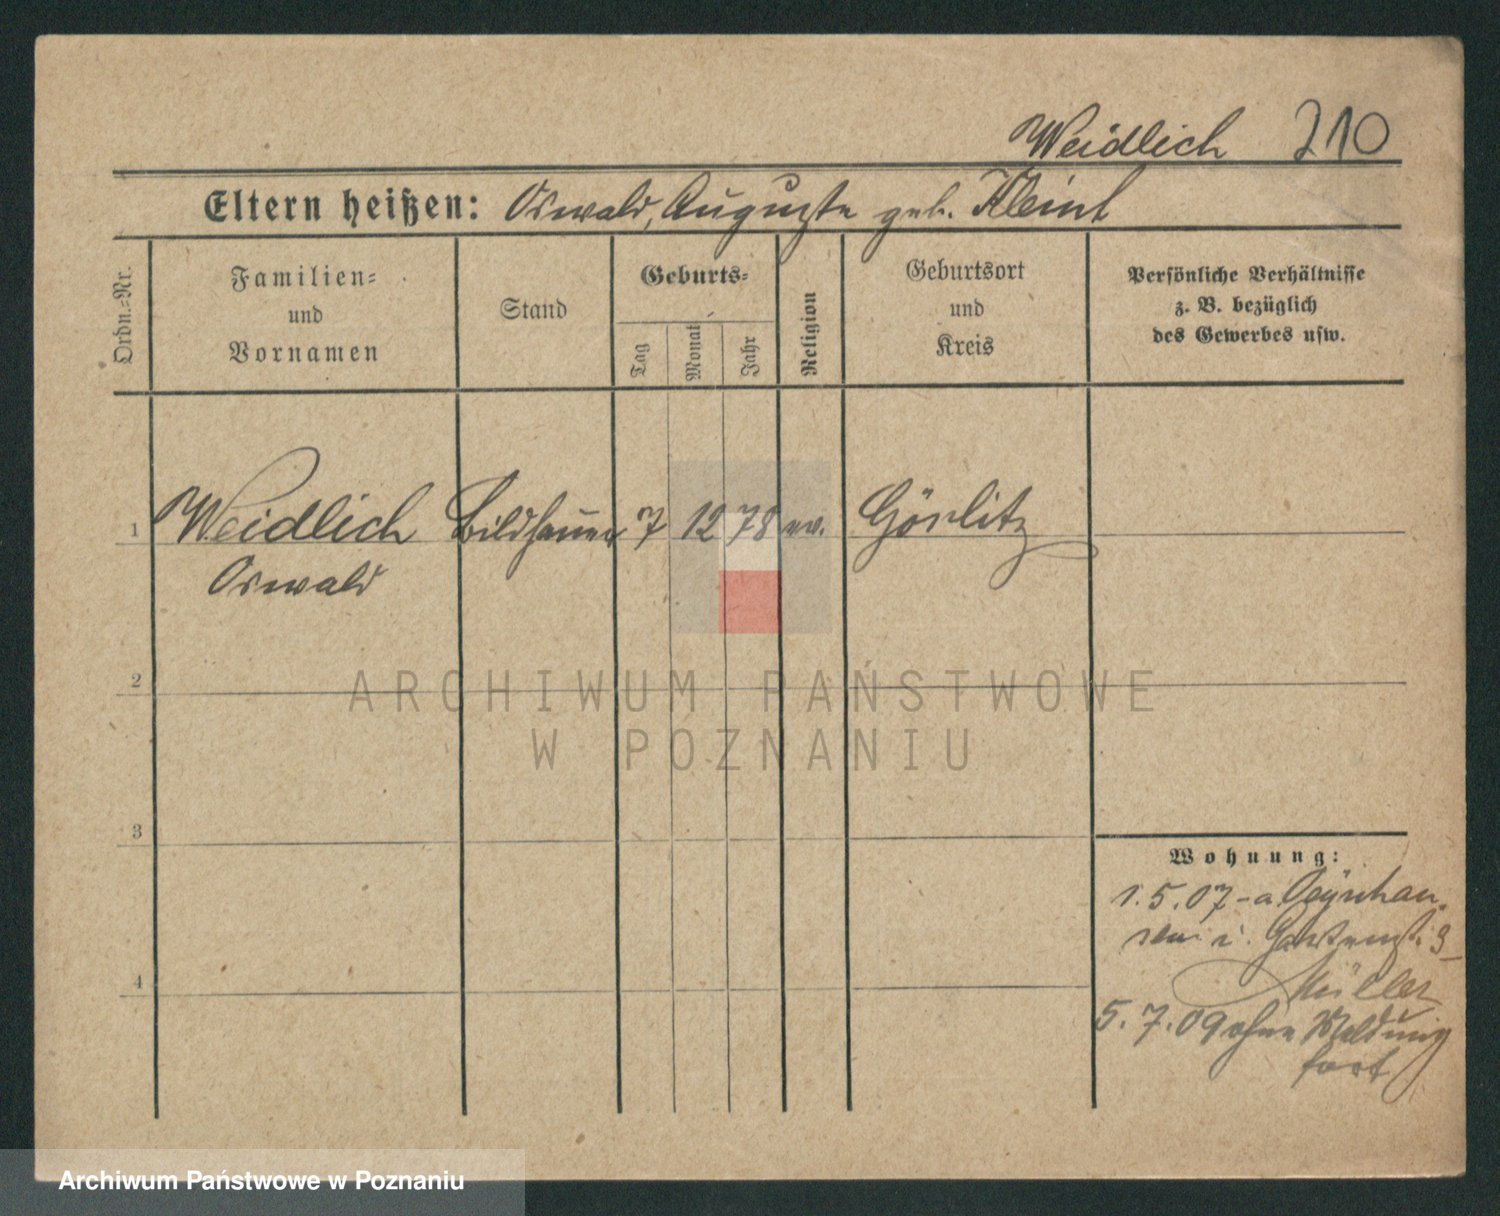 Weidlich 210
Eltern heißen: Oswald, Auguste geb. Kleint
Ordn.-Nr.
Familien-
und
Vornamen
Stand
Geburts-
Tag
Monat
Jahr
Religion
Geburtsort
und
Kreis
Persönliche Verhältnisse
z. B. bezüglich
des Gewerbes usw.
1 Weidlich Bildhauer 7 12 78 ev. Görlitz
Oswald
2
ARCHIWUM PAŃSTWOWE
W POZNANIU
3
Wohnung:
1.5.07 - a Oeynhau-
sen i. 9
Müller
4
5.7.09 ohne Meldung
fort
Archiwum Państwowe w Poznaniu